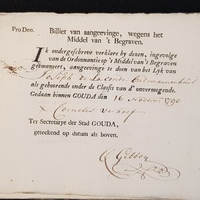 Pro Deo.
Billiet van aangeevinge, wegens het
Middel van 't Begraven.
IK ondergeschreve verklare by dezen, ingevolge
van de Ordonnantie op 't Middel van 't Begraven
geëmaneert, aangeevinge te doen van het Lyk van
Joseph de la
als gehoorende onder de Classis van d' onvermogende.
Gedaan binnen GOUDA den 16 1790
Cornelis
Ter Secretarye der Stad GOUDA,
geteekend op datum als boven.